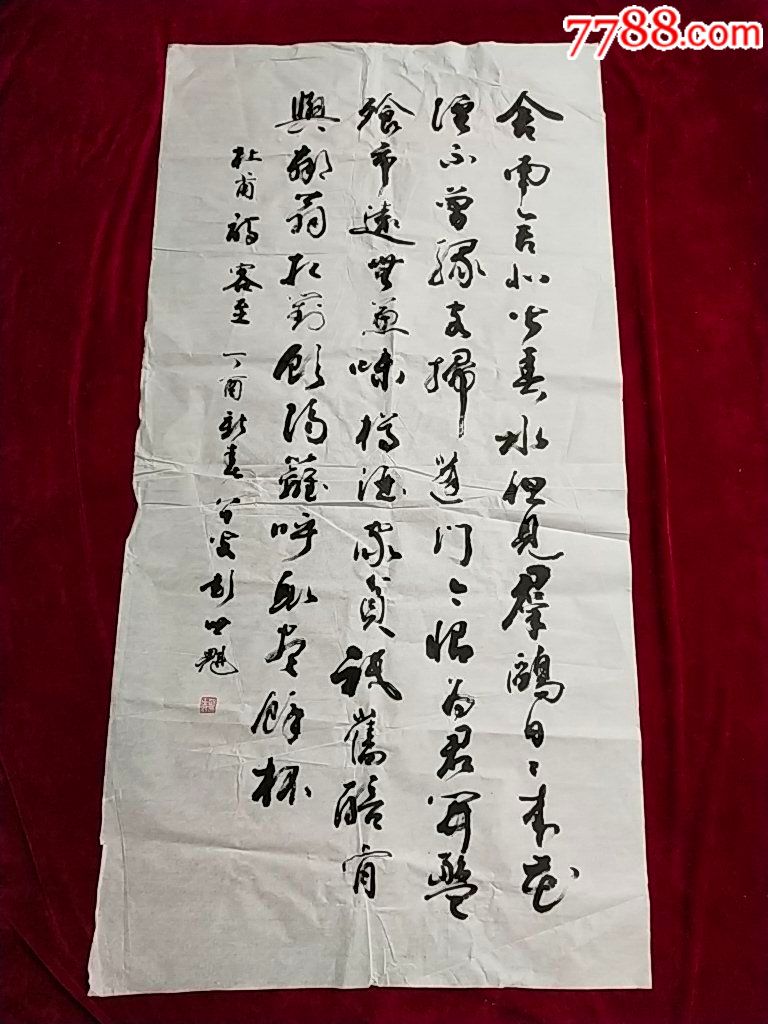 7788.com
舍南舍北皆春水但見羣鷗日々來花
徑不曾緣客掃蓬門今始為君開盤
飧市遠無兼味樽酒家貧祇舊醅肯
與鄰翁相對飲隔籬呼取盡餘杯
杜甫詩客至 丁酉新春 彭世魁